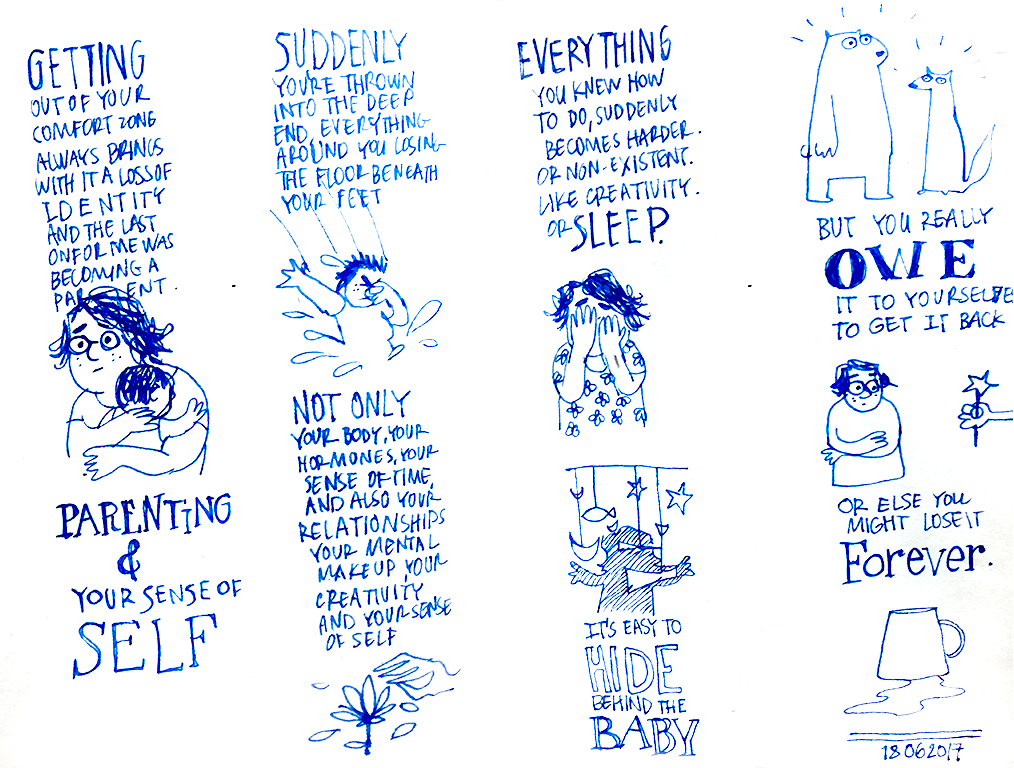 GETTING
OUT OF YOUR
COMFORT ZONE
ALWAYS BRINGS
WITH IT A LOSS OF
IDENTITY
AND THE LAST
ON FOR ME WAS
BECOMING A
PARENT.
PARENTING
&
YOUR SENSE OF
SELF
SUDDENLY
YOU'RE THROWN
INTO THE DEEP
END, EVERYTHING
AROUND YOU LOSING
THE FLOOR BENEATH
YOUR FEET
NOT ONLY
YOUR BODY, YOUR
HORMONES, YOUR
SENSE OF TIME,
AND ALSO YOUR
RELATIONSHIPS
YOUR MENTAL
MAKEUP, YOUR
CREATIVITY
AND YOUR SENSE
OF SELF
EVERYTHING
YOU KNEW HOW
TO DO, SUDDENLY
BECOMES HARDER.
OR NON-EXISTENT.
LIKE CREATIVITY.
OR SLEEP.
IT'S EASY TO
HIDE
BEHIND THE
BABY
BUT YOU REALLY
OWE
IT TO YOURSELVES
TO GET IT BACK
OR ELSE YOU
MIGHT LOSE IT
Forever.
18062017